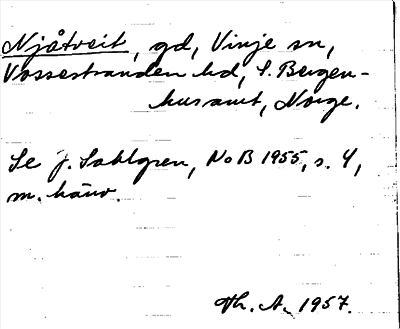 Njåtveit, gd, Vinje sn,
Vossestranden hd, S. Bergen-
husamt, Norge.
Se J. Sahlgren, NoB 1955, s. 4,
m. hänv.
Th. A. 1957.